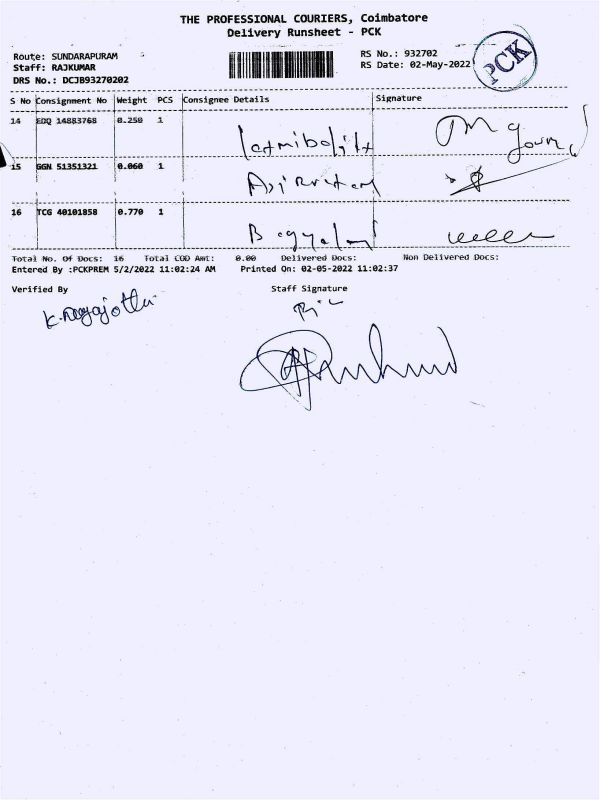 THE PROFESSIONAL COURIERS, Coimbatore
Delivery Runsheet - PCK
Route: SUNDARAPURAM
Staff: RAJKUMAR
DRS No.: DCJB93270202
RS No.: 932702
RS Date: 02-May-2022
PCK
S No Consignment No Weight PCS Consignee Details Signature
14 EDQ 14883768 0.250 1
15 GGN 51351321 0.060 1
16 TCG 40101858 0.770 1
Total No. Of Docs: 16 Total COD Amt: 0.00 Delivered Docs: Non Delivered Docs:
Entered By :PCKPREM 5/2/2022 11:02:24 AM Printed On: 02-05-2022 11:02:37
Verified By Staff Signature